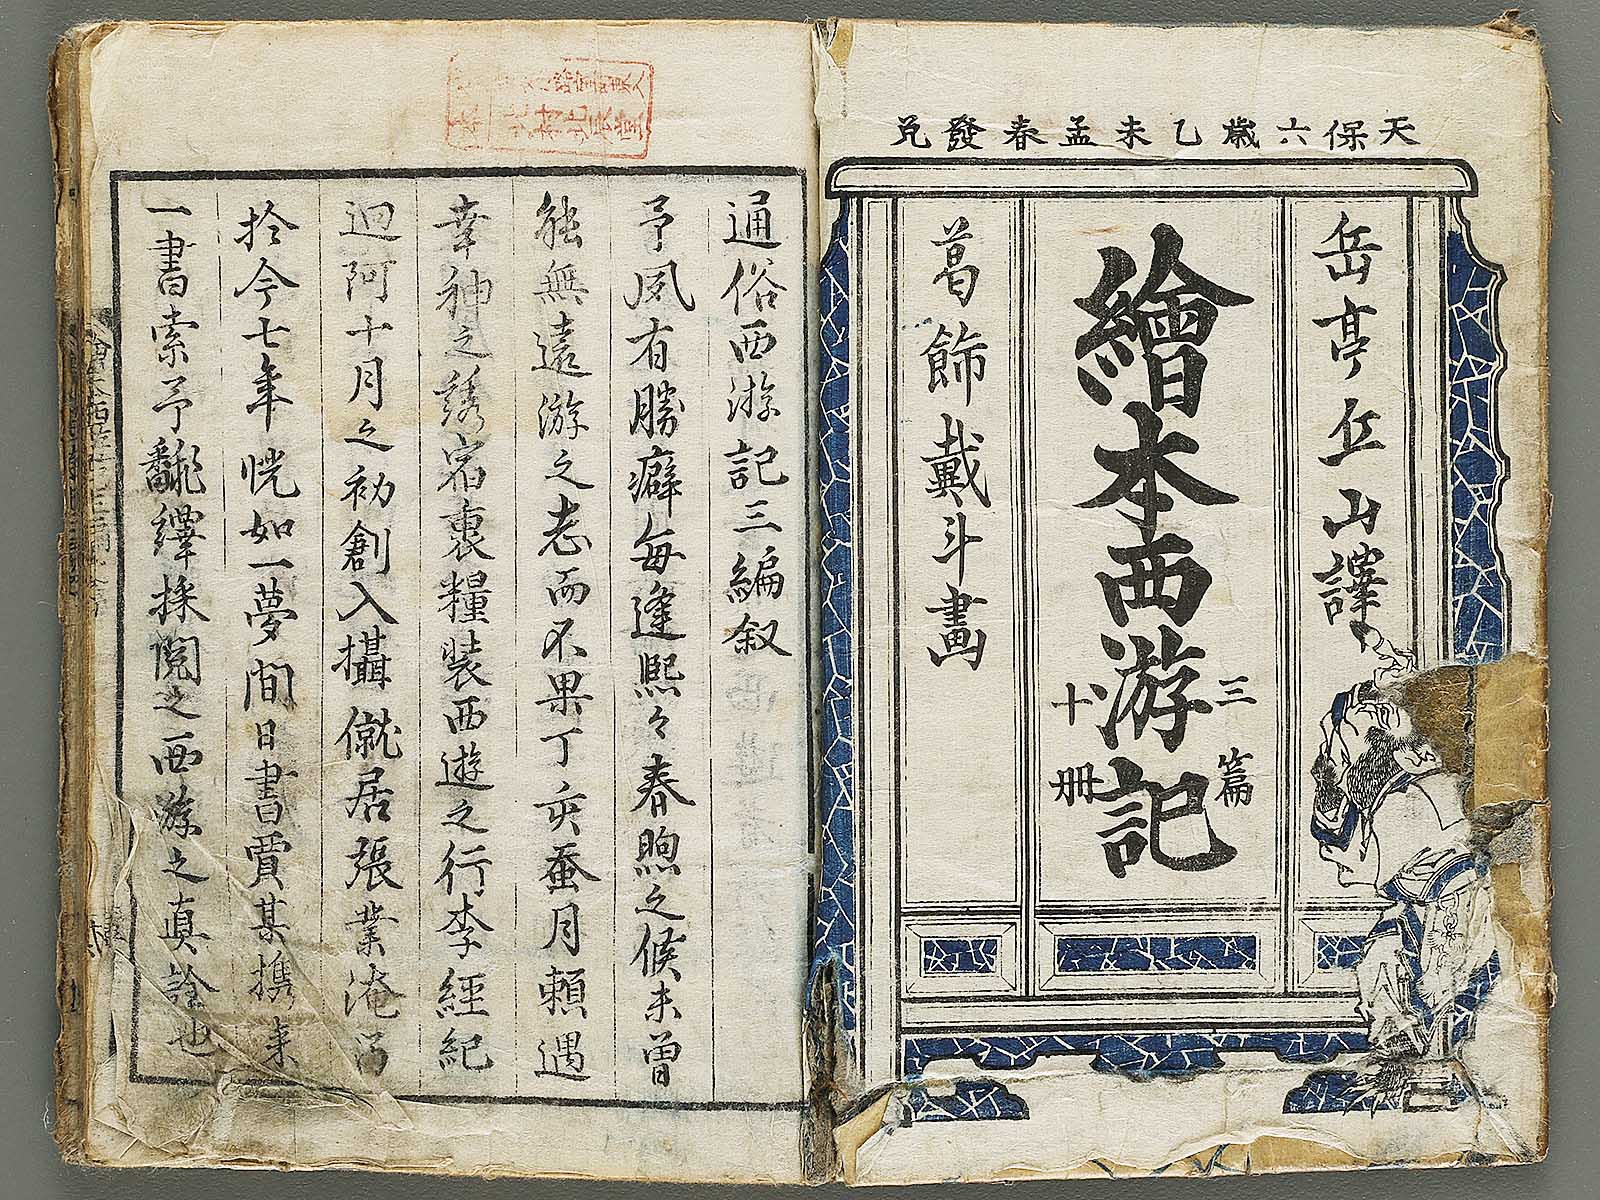 天保六歳乙未孟春發兌
岳亭丘山譯
繪本西游記
三篇
十冊
葛飾戴斗畫
通俗西游記三編叙
予夙有勝癖每逢熙々春煦之候未曽
能無遠游之志而不果丁亥蚕月頼遇
幸神之誘宿裹糧裝西遊之行李經紀
迴阿十月之初創入攝僦居張業淹乃
於今七年恍如一夢間日書賈某携来
一書索予飜繹採閲之西游之真詮也